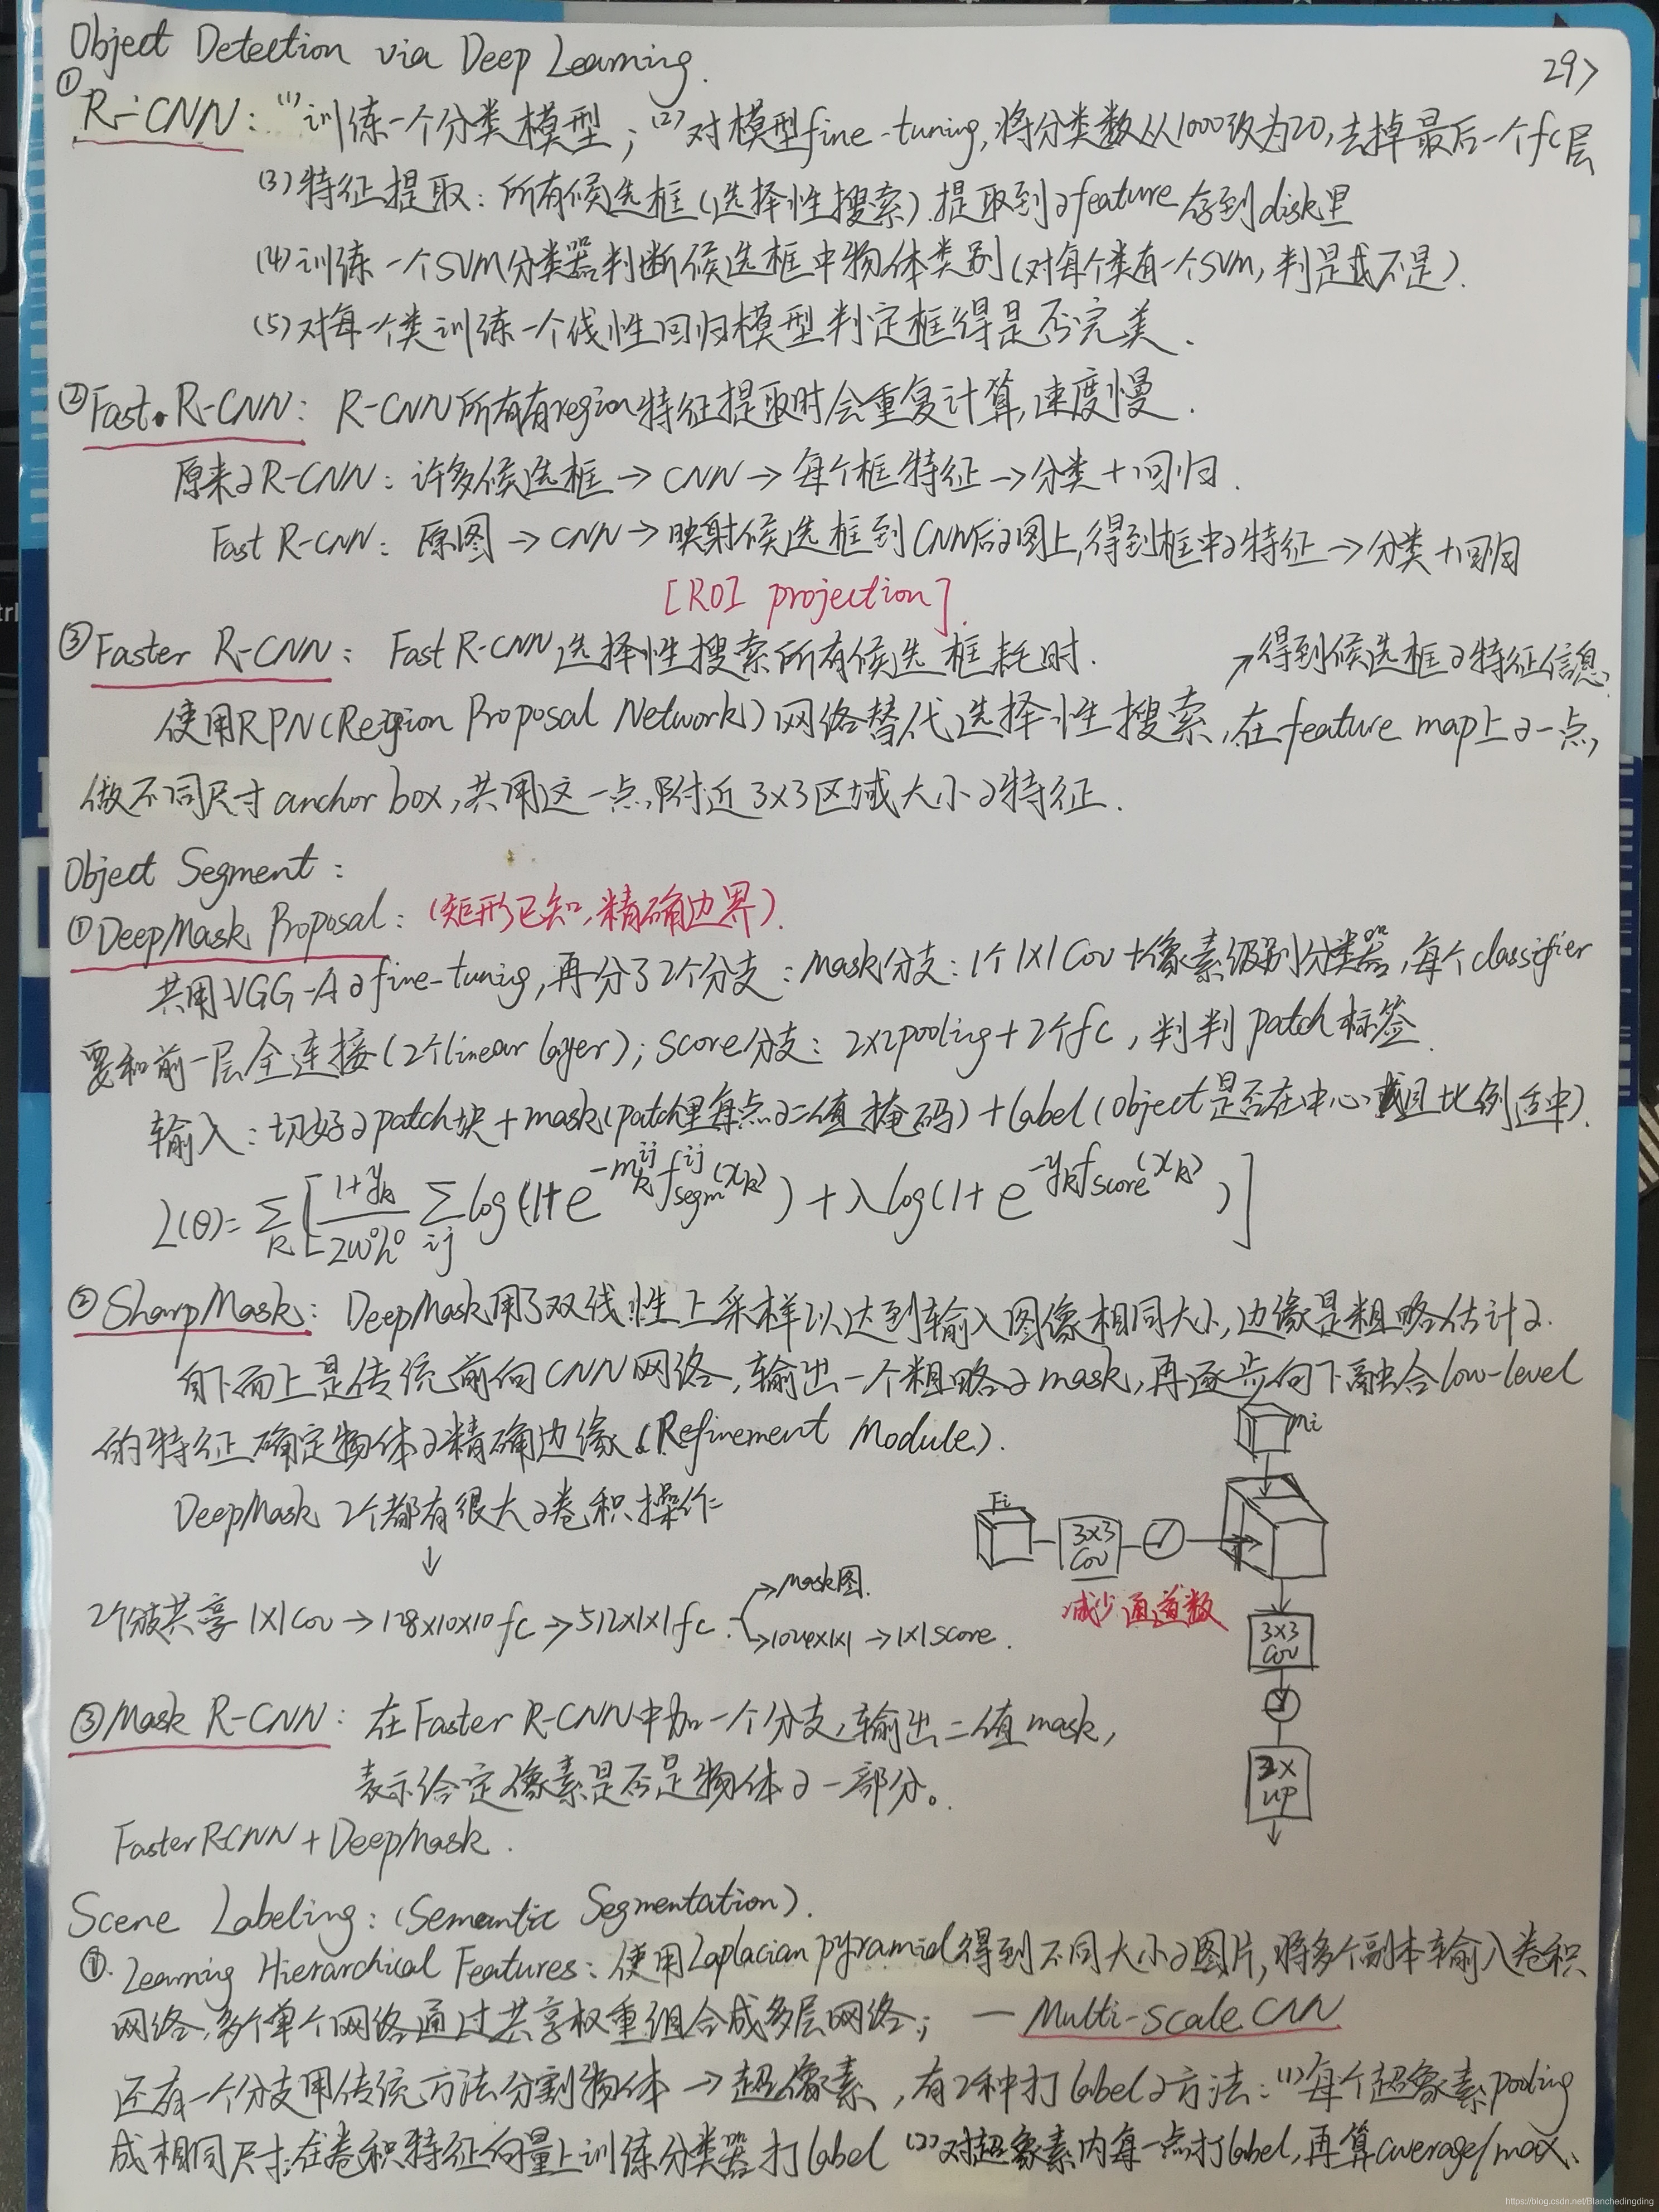 Object Detection via Deep Learning.
29>
① R-CNN: (1)训练一个分类模型; (2)对模型fine-tuning,将分类数从1000改为20,去掉最后一个fc层
(3)特征提取:所有候选框(选择性搜索).提取到的feature存到disk里
(4)训练一个SVM分类器判断候选框中物体类别(对每个类有一个SVM,判是或不是).
(5)对每一个类训练一个线性回归模型判定框得是否完美.
② Fast R-CNN: R-CNN所有有region特征提取时会重复计算,速度慢.
原来的R-CNN: 许多候选框→CNN→每个框特征→分类+回归.
Fast R-CNN: 原图→CNN→映射候选框到CNN后的图上,得到框中的特征→分类+回归
[ROI projection]
③ Faster R-CNN: Fast R-CNN选择性搜索所有候选框耗时.
↗得到候选框的特征信息.
使用RPN(Region Proposal Network)网络替代选择性搜索,在feature map上的一点,
做不同尺寸anchor box,共用这一点附近3x3区域大小的特征.
Object Segment:
① DeepMask Proposal: (矩形已知,精确边界).
共用VGG-A的fine-tuning,再分了2个分支: Mask分支: 1个1x1Cov+像素级别分类器,每个classifier
要和前一层全连接(2个linear layer); Score分支: 2x2pooling+2个fc,判判patch标签.
输入: 切好的patch块+mask(patch里每点的二值掩码)+label(object是否在中心且比例适中).
L(θ)=Σ_k[(1+y_k)/(2w°h°) Σ_ij log(1+e^{-m_k^{ij} f_segm^{ij}(x_k)})+λlog(1+e^{-y_k f_score(x_k)})]
② SharpMask: DeepMask用了双线性上采样以达到输入图像相同大小,边缘是粗略估计的.
自下而上是传统前向CNN网络,输出一个粗略的mask,再逐步向下融合low-level
的特征确定物体的精确边缘(Refinement Module).
Mi
DeepMask 2个都有很大的卷积操作
Fi
3x3
Cov
减少通道数
↓
2个分支共享1x1Cov→128x10x10fc→512x1x1fc.
→Mask图.
→1024x1x1→1x1score.
3x3
Cov
2x
up
③ Mask R-CNN: 在Faster R-CNN中加一个分支,输出二值mask,
表示给定像素是否是物体的一部分。
Faster RCNN + DeepMask.
Scene Labeling: (Semantic Segmentation).
①. Learning Hierarchical Features: 使用Laplacian pyramid得到不同大小的图片,将多个副本输入卷积
网络,多个单个网络通过共享权重组合成多层网络; — Multi-scale CNN
还有一个分支用传统方法分割物体→超像素,有2种打label的方法: (1)每个超像素pooling
成相同尺寸,在卷积特征向量上训练分类器打label (2)对超像素内每一点打label,再算average/max.
https://blog.csdn.net/Blanchedingding